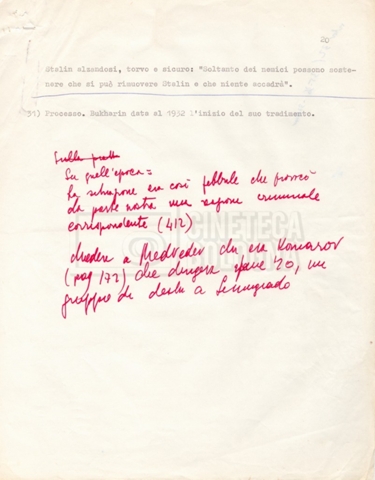 20
Stalin alzandosi, torvo e sicuro: "Soltanto dei nemici possono soste-
nere che si può rimuovere Stalin e che niente accadrà".
31) Processo. Bukharin data al 1932 l'inizio del suo tradimento.
Sulla
Su quell'epoca =
La situazione era così febbrile che provocò
da parte nostra una reazione criminale
corrispondente (412)
chiedere a Medvedev chi era Komarov
(pag 172) che dirigeva fine '20, un
gruppo di destra a Leningrado
CINETECA
BOLOGNA